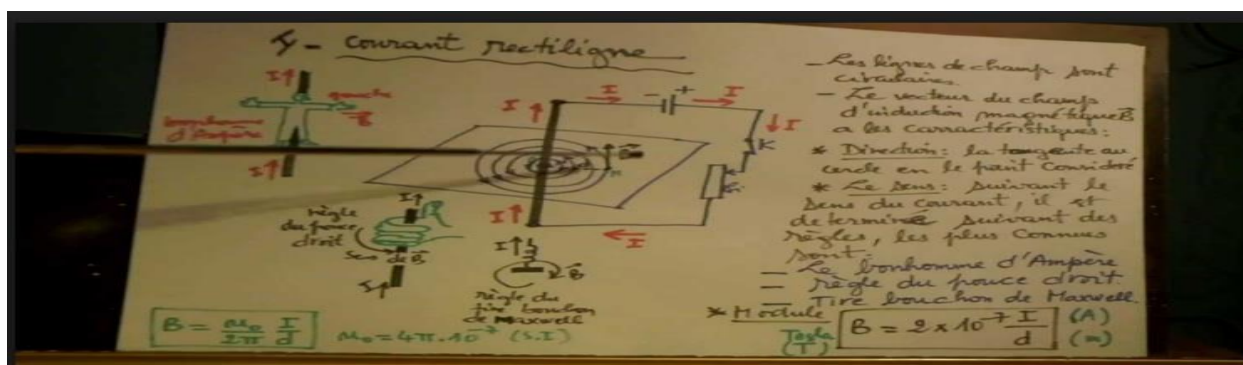 courant rectiligne
I
I
gauche
bonhomme
d'Ampère
I
I
- +
I
I
I
K
I
I
I
règle
du pouce
droit
sens de B
I
I
B
règle du
tire bouchon
de Maxwell
B = μ₀/2π I/d
μ₀ = 4π.10⁻⁷ (S.I)
- Les lignes de champ sont
circulaires.
- Le vecteur du champ
d'induction magnétique B⃗
a les carractéristiques:
* Direction: la tangente au
cercle en le point considéré
* Le sens: suivant le
sens du courant, il est
determiné suivant des
règles, les plus connues
sont:
- Le bonhomme d'Ampère
- règle du pouce droit.
- Tire bouchon de Maxwell.
* Module
Tesla
(T)
B = 2 × 10⁻⁷ I/d
(A)
(m)